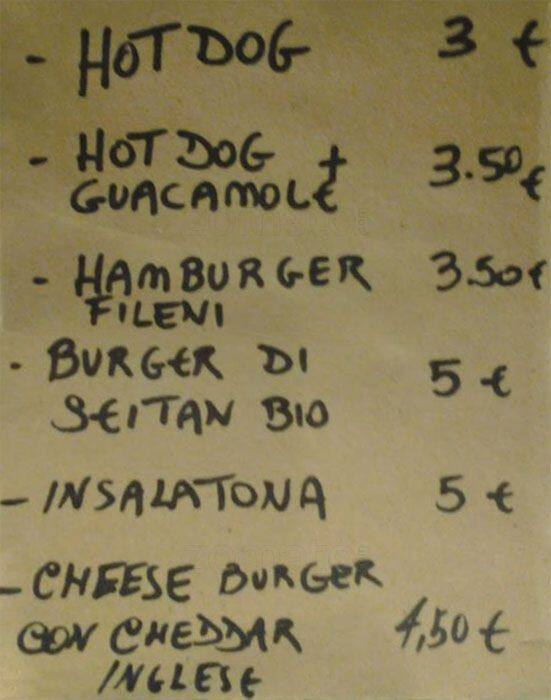 - HOT DOG 3 €
- HOT DOG + 3.50 €
GUACAMOLE
- HAMBURGER 3.50 €
FILENI
- BURGER DI
SEITAN BIO 5 €
- INSALATONA 5 €
- CHEESE BURGER
CON CHEDDAR 4,50 €
INGLESE